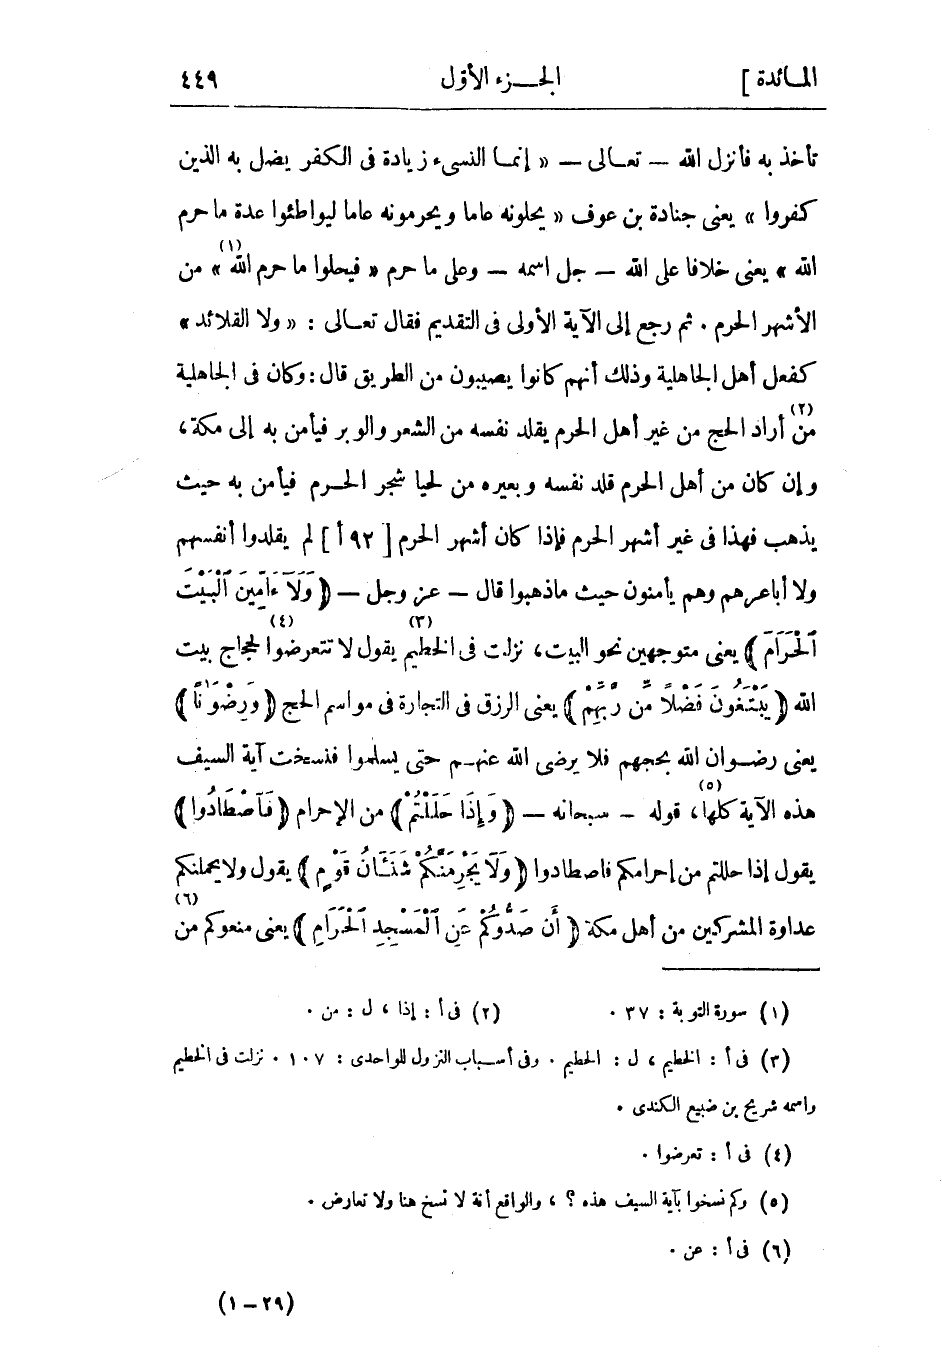 المائدة ] الجزء الأول ٤٤٩
تأخذ به فأنزل الله — تعالى — « إنما النسىء زيادة فى الكفر يضل به الذين
كفروا » يعنى جنادة بن عوف « يحلونه عاما ويحرمونه عاما ليواطئوا عدة ما حرم
الله » يعنى خلافا على الله — جل اسمه — وعلى ما حرم « فيحلوا ما حرم الله » (١) من
الأشهر الحرم . ثم رجع إلى الآية الأولى فى التقديم فقال تعالى : « ولا القلائد »
كفعل أهل الجاهلية وذلك أنهم كانوا يصيبون من الطريق قال : وكان فى الجاهلية
من (٢) أراد الحج من غير أهل الحرم يقلد نفسه من الشعر والوبر فيأمن به إلى مكة ،
وإن كان من أهل الحرم قلد نفسه وبعيره من لحيا شجر الحرم فيأمن به حيث
يذهب فهذا فى غير أشهر الحرم فإذا كان أشهر الحرم [ ٩٢ أ ] لم يقلدوا أنفسهم
ولا أباعرهم وهم يأمنون حيث ماذهبوا قال — عز وجل — ﴿ وَلَآ ءَآمِّينَ ٱلْبَيْتَ
ٱلْحَرَامَ ﴾ يعنى متوجهين نحو البيت ، نزلت فى الخطيم (٣) يقول لا تتعرضوا (٤) لحجاج بيت
الله ﴿ يَبْتَغُونَ فَضْلًا مِّن رَّبِّهِمْ ﴾ يعنى الرزق فى التجارة فى مواسم الحج ﴿ وَرِضْوَٰنًا ﴾
يعنى رضوان الله بحجهم فلا يرضى الله عنهم حتى يسلموا فنسخت آية السيف
هذه الآية كلها (٥) ، قوله — سبحانه — ﴿ وَإِذَا حَلَلْتُمْ ﴾ من الإحرام ﴿ فَٱصْطَادُوا ﴾
يقول إذا حللتم من إحرامكم فاصطادوا ﴿ وَلَا يَجْرِمَنَّكُمْ شَنَـَٔانُ قَوْمٍ ﴾ يقول ولا يحملنكم
عداوة المشركين من أهل مكة ﴿ أَن صَدُّوكُمْ عَنِ ٱلْمَسْجِدِ ٱلْحَرَامِ ﴾ يعنى منعوكم من (٦)
(١) سورة التوبة : ٣٧ . (٢) فى أ : إذا ، ل : من .
(٣) فى أ : الخطيم ، ل : الحطيم . وفى أسباب النزول للواحدى : ١٠٧ . نزلت فى الخطيم
واسمه شريح بن ضبيع الكندى .
(٤) فى أ : تعرضوا .
(٥) وكم نسخوا بآية السيف هذه ؟ ، والواقع أنة لا نسخ هنا ولا تعارض .
(٦) فى أ : عن .
(٢٩ – ١)